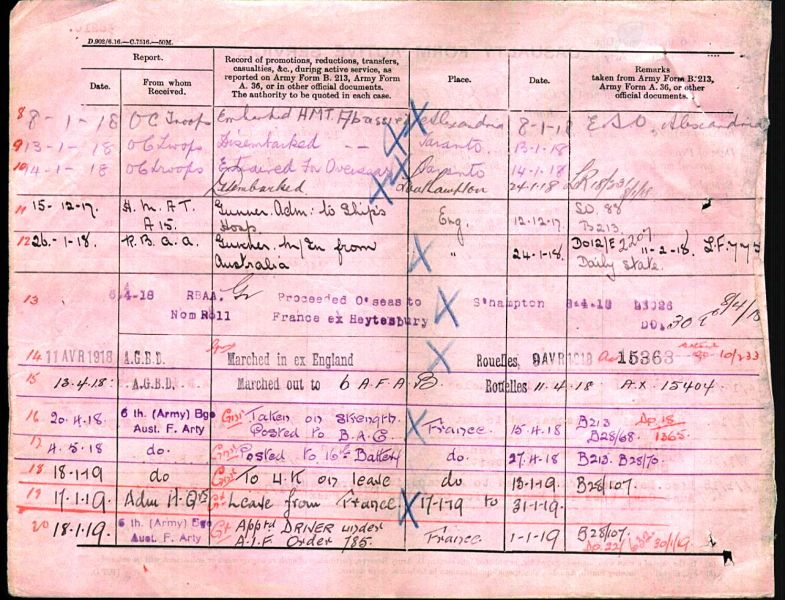 D.902/6.16.—C.7516.—50M.
Report.
Record of promotions, reductions, transfers, casualties, &c., during active service, as reported on Army Form B. 213, Army Form A. 36, or in other official documents. The authority to be quoted in each case.
Place.
Date.
Remarks taken from Army Form B. 213, Army Form A. 36, or other official documents.
Date.
From whom Received.
8 8-1-18 O C Troops Embarked H.M.T. Alexandria 8-1-18 E.S.O, Alexandria
9 13-1-18 O C Troops Disembarked -- Taranto 13-1-18
10 14-1-18 O C Troops Entrained Fr Overseas Taranto 14-1-18
Disembarked Southampton 24-1-18
11 15-12-17. H.M.A.T. A 15. Gunner. Adm: to Ship's Hosp. Eng. 12-12-17. B213.
12 26-1-18. R.B.A.A. M/In from Australia " 24-1-18. DO12/E2207 11-2-18. L.F.775
Daily State.
13 8-4-18 RBAA. Gr Proceeded O'seas to S'hampton 8-4-18 L3026
Nom Roll France ex Heytesbury DO. 30
14 11 AVR 1918 A.G.B.D. Marched in ex England Rouelles, 9 AVR 1918 15363
15 13-4-18. A.G.B.D. Marched out to 6 A.F.A.B. Rouelles 11-4-18. AX 15404
16 20-4-18 6 th. (Army) Bge Aust. F. Arty Gnr Taken on strength. Posted to B.A.C. France. 15-4-18. B213 B28/68. Do 18 1365
17 4.5.18 do. Gnr Posted to 16th Battery do. 27-4-18 B213. B28/70.
18 18-1-19 do Gnr To U.K on leave do 13-1-19 B28/107.
19 17-1-19. Adm H.Qrs Gr Leave from France. 17-1-19 to 31-1-19.
20 18.1.19. 6 th. (Army) Bge Aust. F. Arty Gr Apptd DRIVER under A.I.F Order 785. France. 1-1-19 B28/107.
30/1/19.